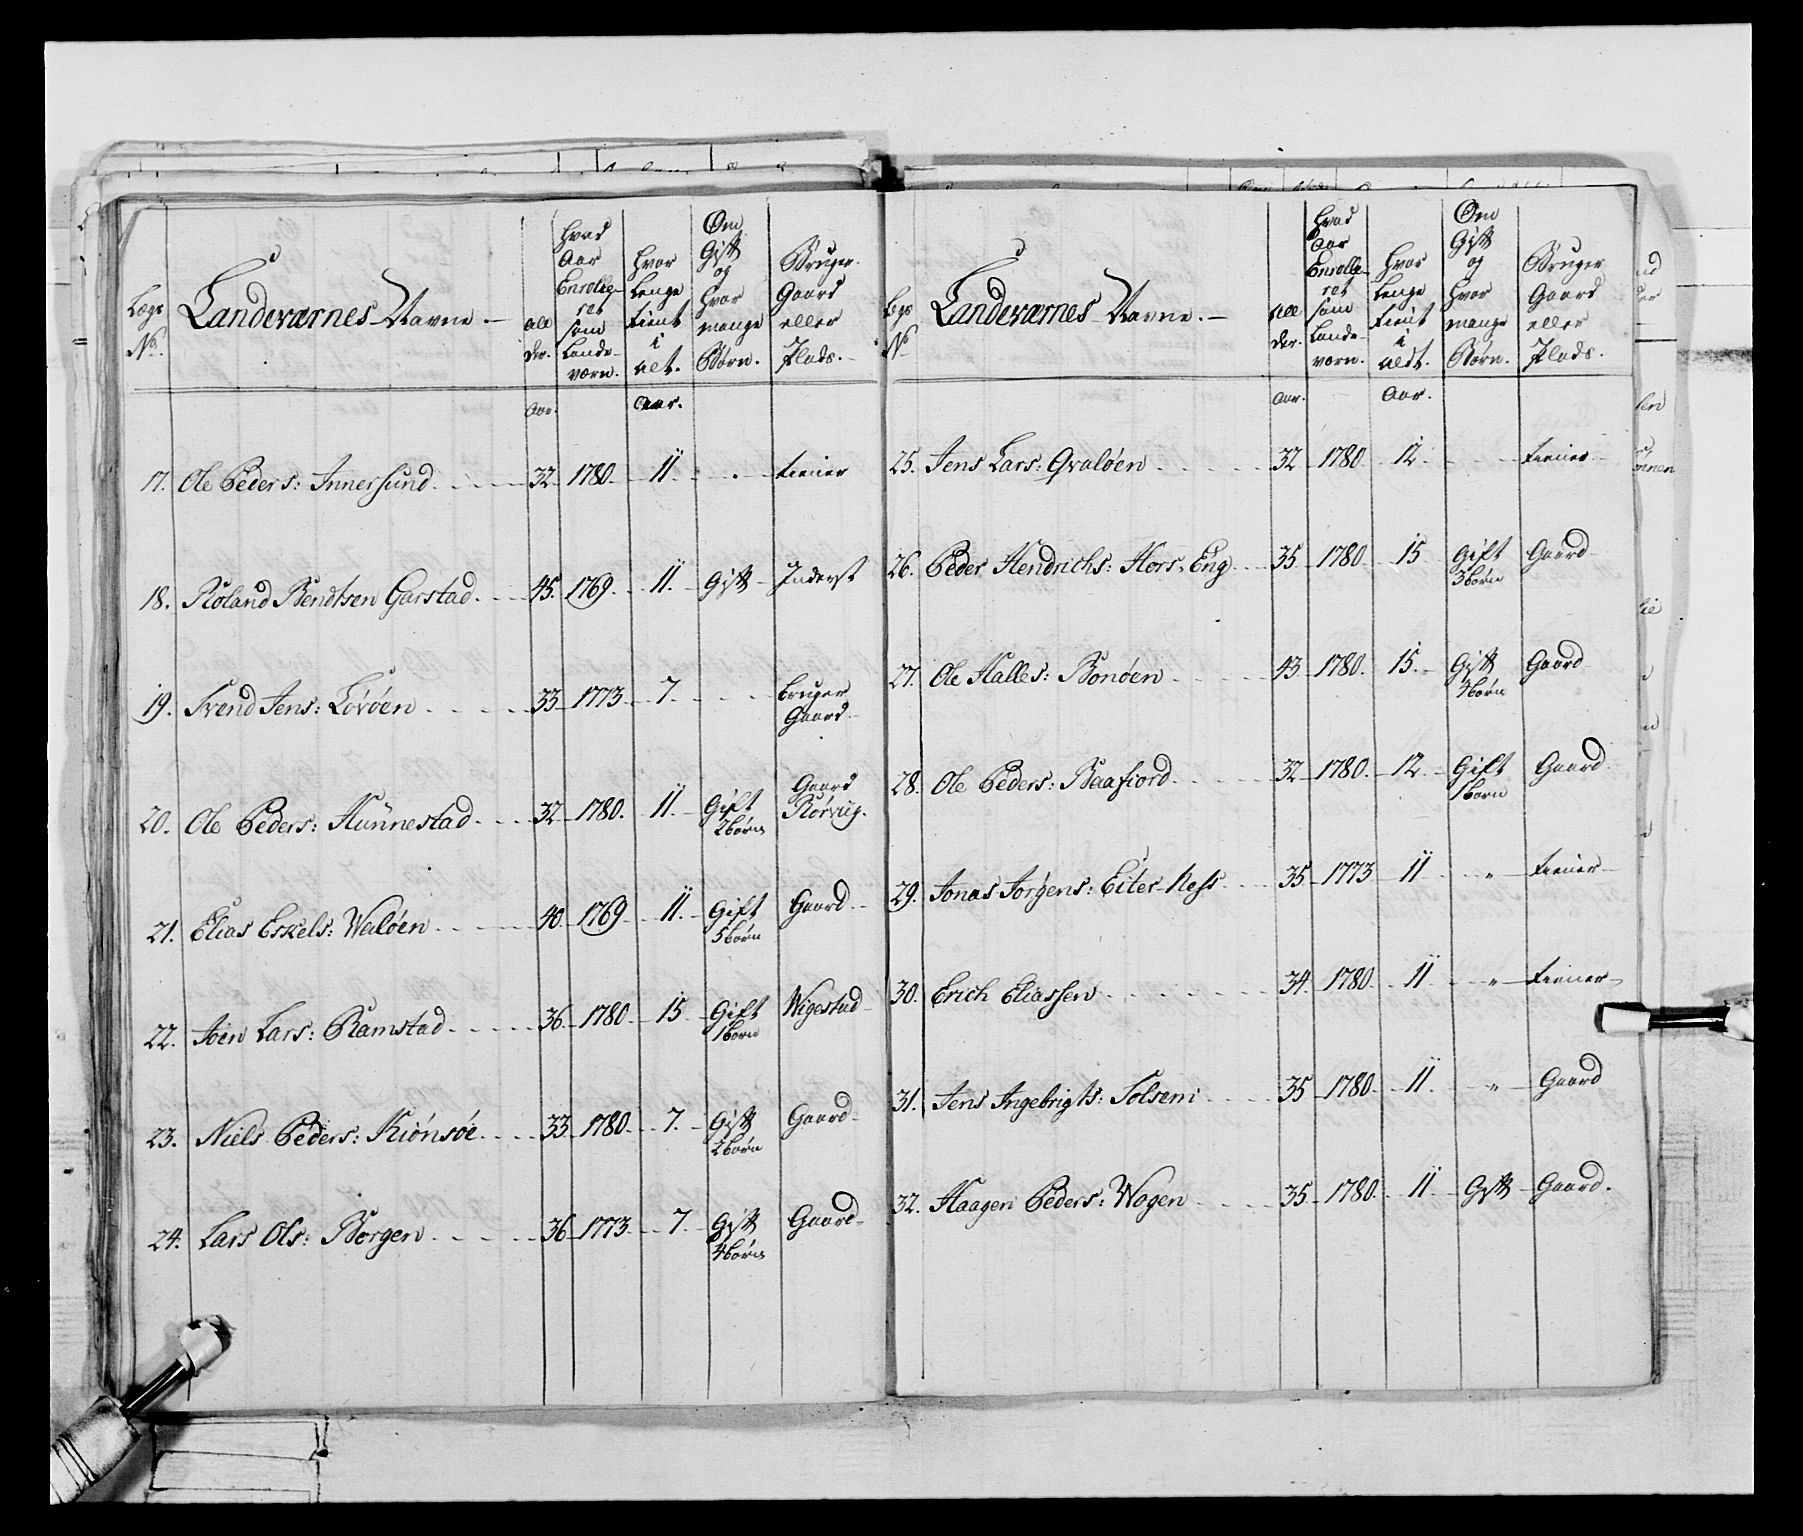 Lægs No. Landeværnes Navne. Al der. Hvad Aar Enrolle- ret som Lande- værn. Hvor Lenge tient i alt. Om Gift og hvor mange Børn. Bruger Gaard eller Plads.
Aar. Aar.
17. Ole Peders: Innersund 32 1780. 11. tiener
18. Roland Bendtsen Garstad 45. 1769. 11. Gift Inderst
19. Svend Jens: Lövöen 33 1773 7. bruger Gaard
20. Ole Peders: Hünnestad 32 1780. 11. Gift 2 børn Gaard Rørvig.
21. Elias Eskels: Walöen 40. 1769 11. Gift 5 børn Gaard
22. Joen Lars: Ramstad 36. 1780. 15. Gift 1 barn Wigestad
23. Niels Peders: Kiönsöe 33 1780. 7. Gift 2 børn Gaard
24. Lars Ols: Borgen 36 1773 7. Gift 4 børn Gaard
Lægs No Landeværnes Navne. Al der. Hvad Aar Enrolle- ret som Lande- værn. Hvor Lenge tient i aldt. Om Gift og hvor mange Børn. Bruger Gaard eller Plads.
Aar. Aar.
25. Jens Lars: Qvalöen 32 1780 12 tiener
26. Peder Hendrichs: Hors. Eng 35 1780 15 Gift 3 børn Gaard
27. Ole Halles: Bonöen 43 1780. 15. Gift 4 børn Gaard
28. Ole Peders: Raafiord 32 1780. 12 Gift 1 barn Gaard
29. Jonas Jörgens: Eiter Ness 35 1773 11 " tiener
30. Erich Eliassen 34. 1780. 11 " tiener
31. Jens Ingebrigts: Solsem 35 1780. 11. " Gaard
32. Haagen Peders: Wogen 35 1780. 11. Gift Gaard.